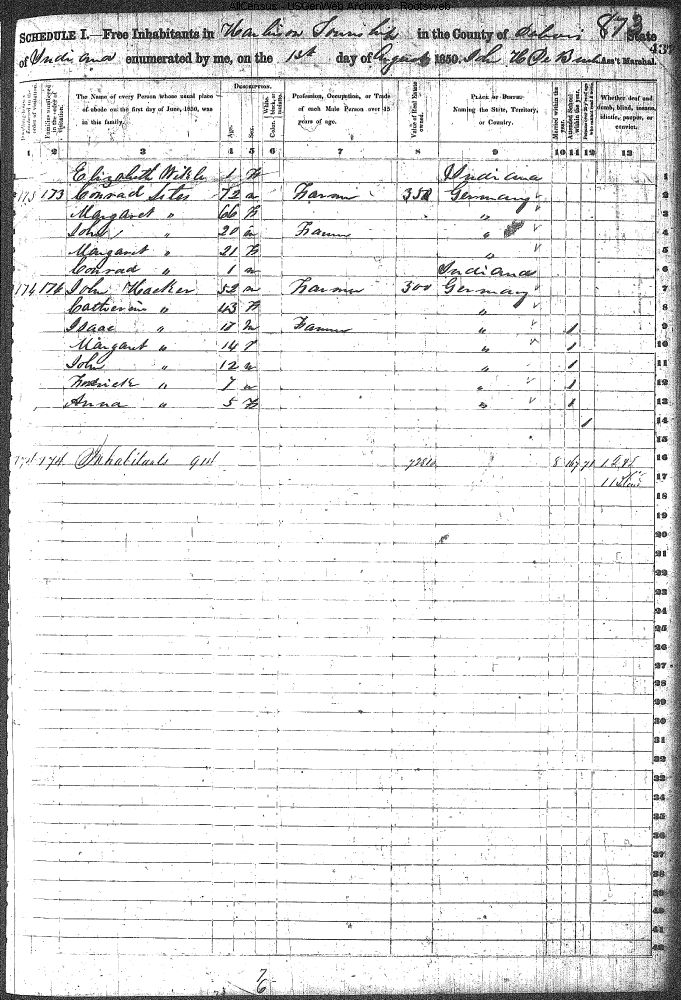 AllCensus - USGenWeb Archives - Rootsweb
873
SCHEDULE I.—Free Inhabitants in Harbison Township in the County of Dubois State
437
of Indiana enumerated by me, on the 1st day of August 1850. John Ass't Marshal.
DESCRIPTION.
Dwelling-houses numbered in the order of visitation.
Families numbered in the order of visitation.
The Name of every Person whose usual place of abode on the first day of June, 1850, was in this family.
Age.
Sex.
Color. White, black, or mulatto.
Profession, Occupation, or Trade of each Male Person over 15 years of age.
Value of Real Estate owned.
PLACE OF BIRTH. Naming the State, Territory, or Country.
Married within the year.
Attended School within the year.
Whether deaf and dumb, blind, insane, idiotic, pauper, or convict.
1 2 3 4 5 6 7 8 9 10 11 12 13
Elizabeth 1 F Indiana 1
173 173 Conrad Sites 72 m Farmer 350 Germany 2
Margaret " 66 F " 3
John " 20 m Farmer " 4
Margaret " 21 F " 5
Conrad " 1 m Indiana 6
174 174 John Hacker 52 m Farmer 300 Germany 7
Catherine " 43 F " 8
Isaac " 17 m Farmer " 1 9
Margaret " 14 f " 1 10
John " 12 m " 1 11
" 7 m " 1 12
Anna " 5 F " 1 13
1 14
15
174 174 Inhabitants 8 16
17
18
19
20
21
22
23
24
25
26
27
28
29
30
31
32
33
34
35
36
37
38
39
40
41
42